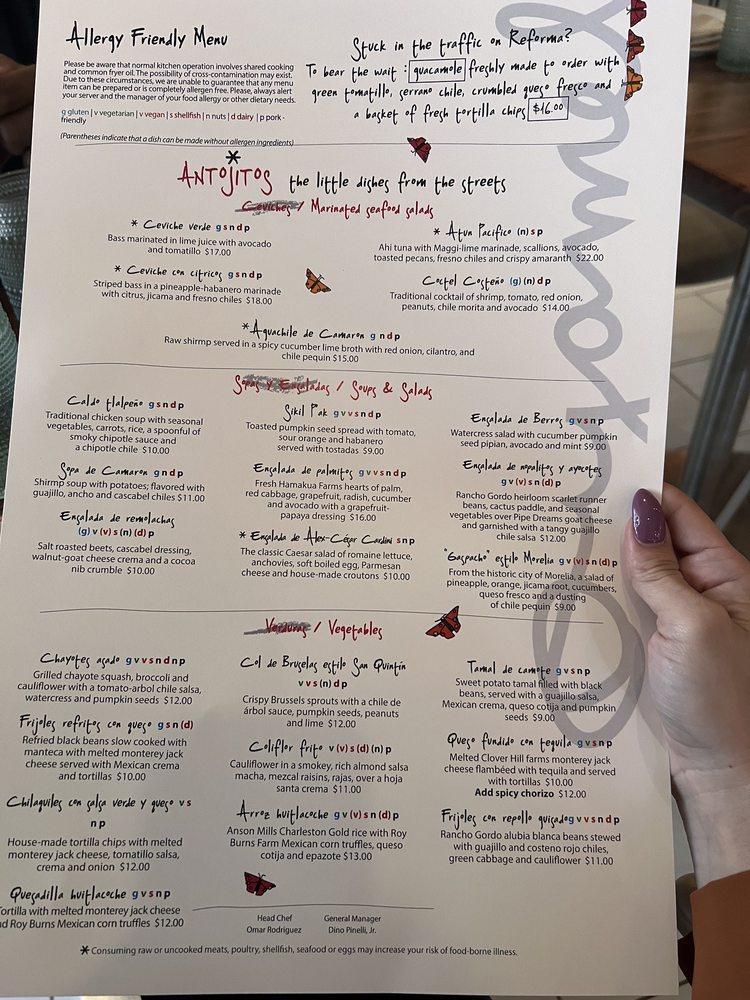 Allergy Friendly Menu
Please be aware that normal kitchen operation involves shared cooking
and common fryer oil. The possibility of cross-contamination may exist.
Due to these circumstances, we are unable to guarantee that any menu
item can be prepared or is completely allergen free. Please, always alert
your server and the manager of your food allergy or other dietary needs.
g gluten | v vegetarian | v vegan | s shellfish | n nuts | d dairy | p pork -
friendly
(Parentheses indicate that a dish can be made without allergen ingredients)
Stuck in the traffic on Reforma?
To bear the wait : guacamole freshly made to order with
green tomatillo, serrano chile, crumbled queso fresco and
a basket of fresh tortilla chips $16.00
*
ANTOJITOS the little dishes from the streets
Ceviches / Marinated seafood salads
* Ceviche verde g s n d p
Bass marinated in lime juice with avocado
and tomatillo $17.00
* Atun Pacifico (n) s p
Ahi tuna with Maggi-lime marinade, scallions, avocado,
toasted pecans, fresno chiles and crispy amaranth $22.00
* Ceviche con citricos g s n d p
Striped bass in a pineapple-habanero marinade
with citrus, jicama and fresno chiles $18.00
Coctel Costeño (g) (n) d p
Traditional cocktail of shrimp, tomato, red onion,
peanuts, chile morita and avocado $14.00
* Aguachile de Camaron g n d p
Raw shirmp served in a spicy cucumber lime broth with red onion, cilantro, and
chile pequin $15.00
Sopas y Ensaladas / Soups & Salads
Caldo tlalpeño g s n d p
Traditional chicken soup with seasonal
vegetables, carrots, rice, a spoonful of
smoky chipotle sauce and
a chipotle chile $10.00
Sopa de Camaron g n d p
Shirmp soup with potatoes; flavored with
guajillo, ancho and cascabel chiles $11.00
Ensalada de remolachas
(g) v (v) s (n) (d) p
Salt roasted beets, cascabel dressing,
walnut-goat cheese crema and a cocoa
nib crumble $10.00
Sikil P'ak g v v s n d p
Toasted pumpkin seed spread with tomato,
sour orange and habanero
served with tostadas $9.00
Ensalada de palmitos g v v s n d p
Fresh Hamakua Farms hearts of palm,
red cabbage, grapefruit, radish, cucumber
and avocado with a grapefruit-
papaya dressing $16.00
* Ensalada de Alex-César Cardini s n p
The classic Caesar salad of romaine lettuce,
anchovies, soft boiled egg, Parmesan
cheese and house-made croutons $10.00
Ensalada de Berros g v s n p
Watercress salad with cucumber pumpkin
seed pipian, avocado and mint $9.00
Ensalada de nopalitos y ayocotes
g v (v) s n (d) p
Rancho Gordo heirloom scarlet runner
beans, cactus paddle, and seasonal
vegetables over Pipe Dreams goat cheese
and garnished with a tangy guajillo
chile salsa $12.00
"Gaspacho" estilo Morelia g v (v) s n (d) p
From the historic city of Morelia, a salad of
pineapple, orange, jicama root, cucumbers,
queso fresco and a dusting
of chile pequin $9.00
Verduras / Vegetables
Chayotes asado g v v s n d n p
Grilled chayote squash, broccoli and
cauliflower with a tomato-arbol chile salsa,
watercress and pumpkin seeds $12.00
Frijoles refritos con queso g s n (d)
Refried black beans slow cooked with
manteca with melted monterey jack
cheese served with Mexican crema
and tortillas $10.00
Chilaquiles con salsa verde y queso v s
n p
House-made tortilla chips with melted
monterey jack cheese, tomatillo salsa,
crema and onion $12.00
Quesadilla huitlacoche g v s n p
Tortilla with melted monterey jack cheese
and Roy Burns Mexican corn truffles $12.00
Col de Bruselas estilo San Quintin
v v s (n) d p
Crispy Brussels sprouts with a chile de
árbol sauce, pumpkin seeds, peanuts
and lime $12.00
Coliflor frito v (v) s (d) (n) p
Cauliflower in a smokey, rich almond salsa
macha, mezcal raisins, rajas, over a hoja
santa crema $11.00
Arroz huitlacoche g v (v) s n (d) p
Anson Mills Charleston Gold rice with Roy
Burns Farm Mexican corn truffles, queso
cotija and epazote $13.00
Tamal de camote g v s n p
Sweet potato tamal filled with black
beans, served with a guajillo salsa,
Mexican crema, queso cotija and pumpkin
seeds $9.00
Queso fundido con tequila g v s n p
Melted Clover Hill farms monterey jack
cheese flambéed with tequila and served
with tortillas $10.00
Add spicy chorizo $12.00
Frijoles con repollo guisado g v v s n d p
Rancho Gordo alubia blanca beans stewed
with guajillo and costeno rojo chiles,
green cabbage and cauliflower $11.00
Head Chef
Omar Rodriguez
General Manager
Dino Pinelli, Jr.
* Consuming raw or uncooked meats, poultry, shellfish, seafood or eggs may increase your risk of food-borne illness.